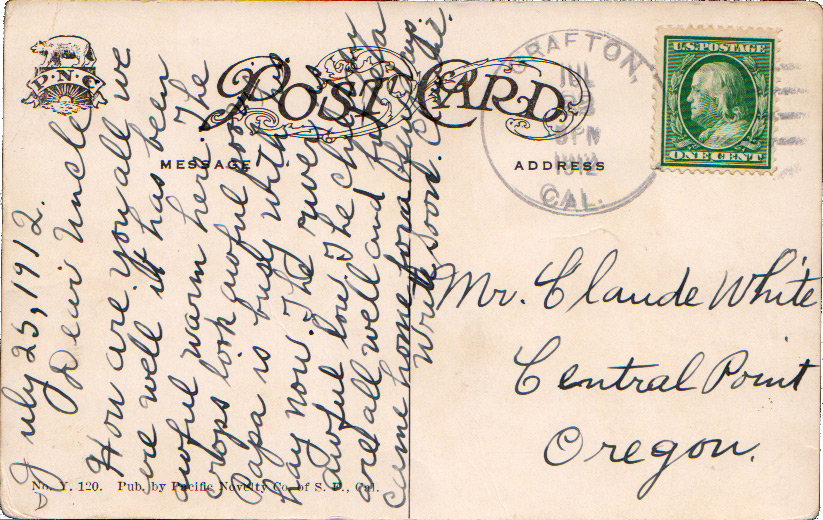 P.N.C.
POST CARD
MESSAGE
ADDRESS
GRAFTON,
JUL
3PN
1912
CAL.
U.S. POSTAGE
ONE CENT
July 25, 1912.
Dear Uncle
How are you all we
are well it has been
awful warm here. The
crops look awful poor
Papa is busy with his
hay now. The river is
awful low. The
are all well and
came home for a few days.
Write soon.
Mr. Claude White
Central Point
Oregon.
No. Y. 120. Pub. by Pacific Novelty Co. of S. F., Cal.